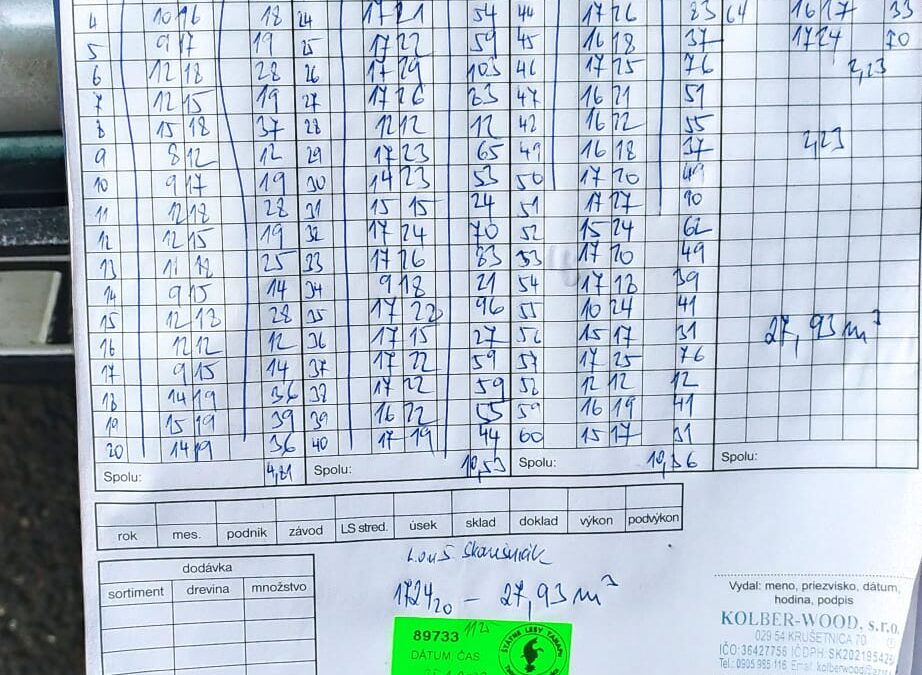 4 10 16 18 24 17 21 54 44 17 26 83 64 16 17 33
5 9 17 19 25 17 22 59 45 16 18 37 17 24 70
6 12 18 28 26 17 29 103 46 17 25 76 2,23
7 12 15 19 27 17 26 83 47 16 21 51
8 15 18 37 28 12 12 12 48 16 22 55
9 8 12 12 29 17 23 65 49 16 18 37 2,23
10 9 17 19 30 14 23 53 50 17 20 49
11 12 18 28 31 15 15 24 51 17 27 90
12 12 15 19 32 17 24 70 52 15 24 62
13 11 18 25 33 17 26 83 53 17 20 49
14 9 15 14 34 9 18 21 54 17 18 39
15 12 18 28 35 17 28 96 55 10 24 41
16 12 12 12 36 17 15 27 56 15 17 31 27,93 m³
17 9 15 14 37 17 22 59 57 17 25 76
18 14 19 36 38 17 22 59 58 12 12 12
19 15 19 39 39 16 22 55 59 16 19 41
20 14 19 36 40 17 19 44 60 15 17 31
Spolu: 4,81 Spolu: 10,53 Spolu: 10,36 Spolu:
rok mes. podnik závod LS stred. úsek sklad doklad výkon podvýkon
dodávka
sortiment drevina množstvo
1724 20 – 27,93 m³
89733
DÁTUM ČAS
ŠTÁTNE LESY TANAPU
Vydal: meno, priezvisko, dátum,
hodina, podpis
KOLBER-WOOD, s.r.o.
029 54 KRUŠETNICA 70
IČO:36427756 IČDPH:SK202185425
Tel.: 0905 985 116, Email: kolberwood@